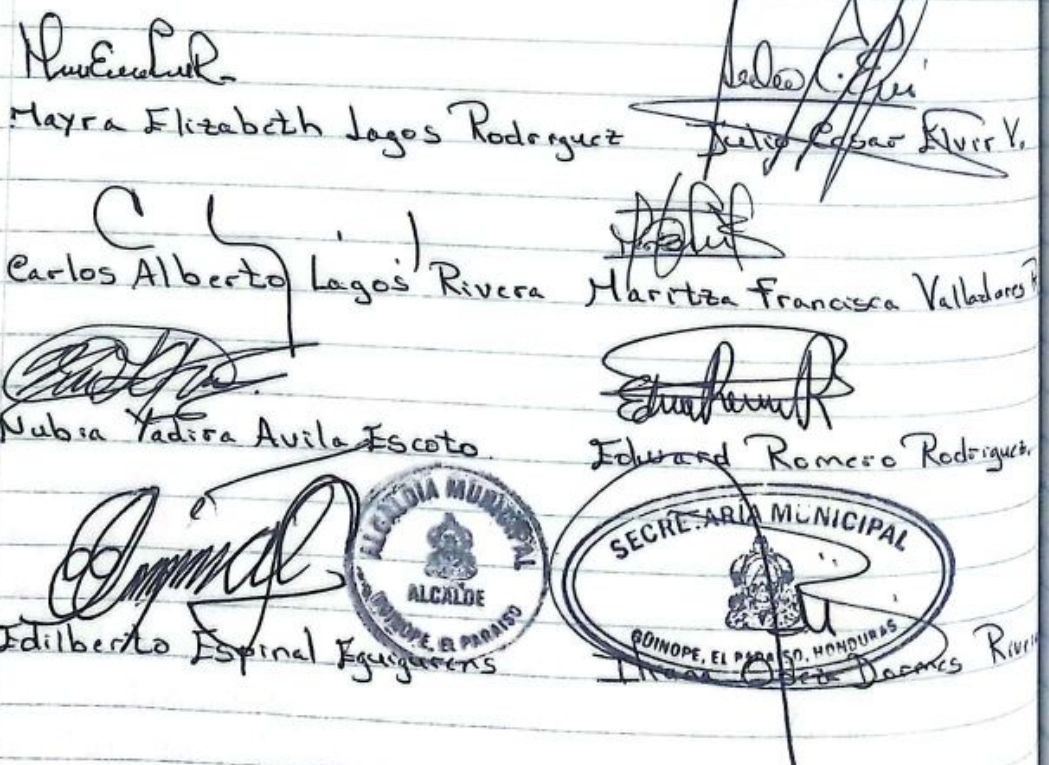 Mayra Elizabeth Lagos Rodriguez
Julio Cesar Elvir V.
Carlos Alberto Lagos Rivera
Maritza Francisca Valladares
Nubia Yadira Avila Escoto.
Edward Romero Rodriguez.
ALCALDIA MUNICIPAL
ALCALDE
GUINOPE, EL PARAISO
SECRETARIA MUNICIPAL
GUINOPE, EL PARAISO, HONDURAS
Edilberto Espinal Eguigurens